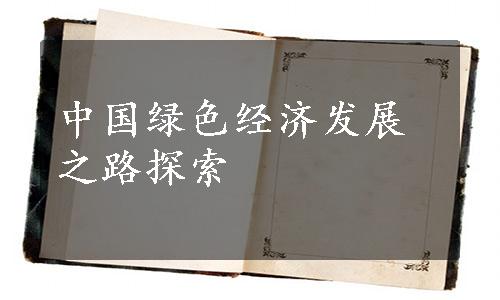 中国绿色经济发展
之路探索